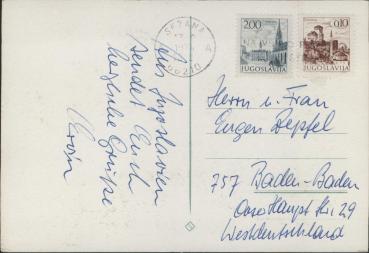 SEŽANA
66210
2.00
JUGOSLAVIJA
0.10
JUGOSLAVIJA
Aus Jugoslavien
sendet Euch
herzliche Grüße
Herrn u. Frau
Eugen
757 Baden-Baden
Haupt Str. 29
Westdeutschland